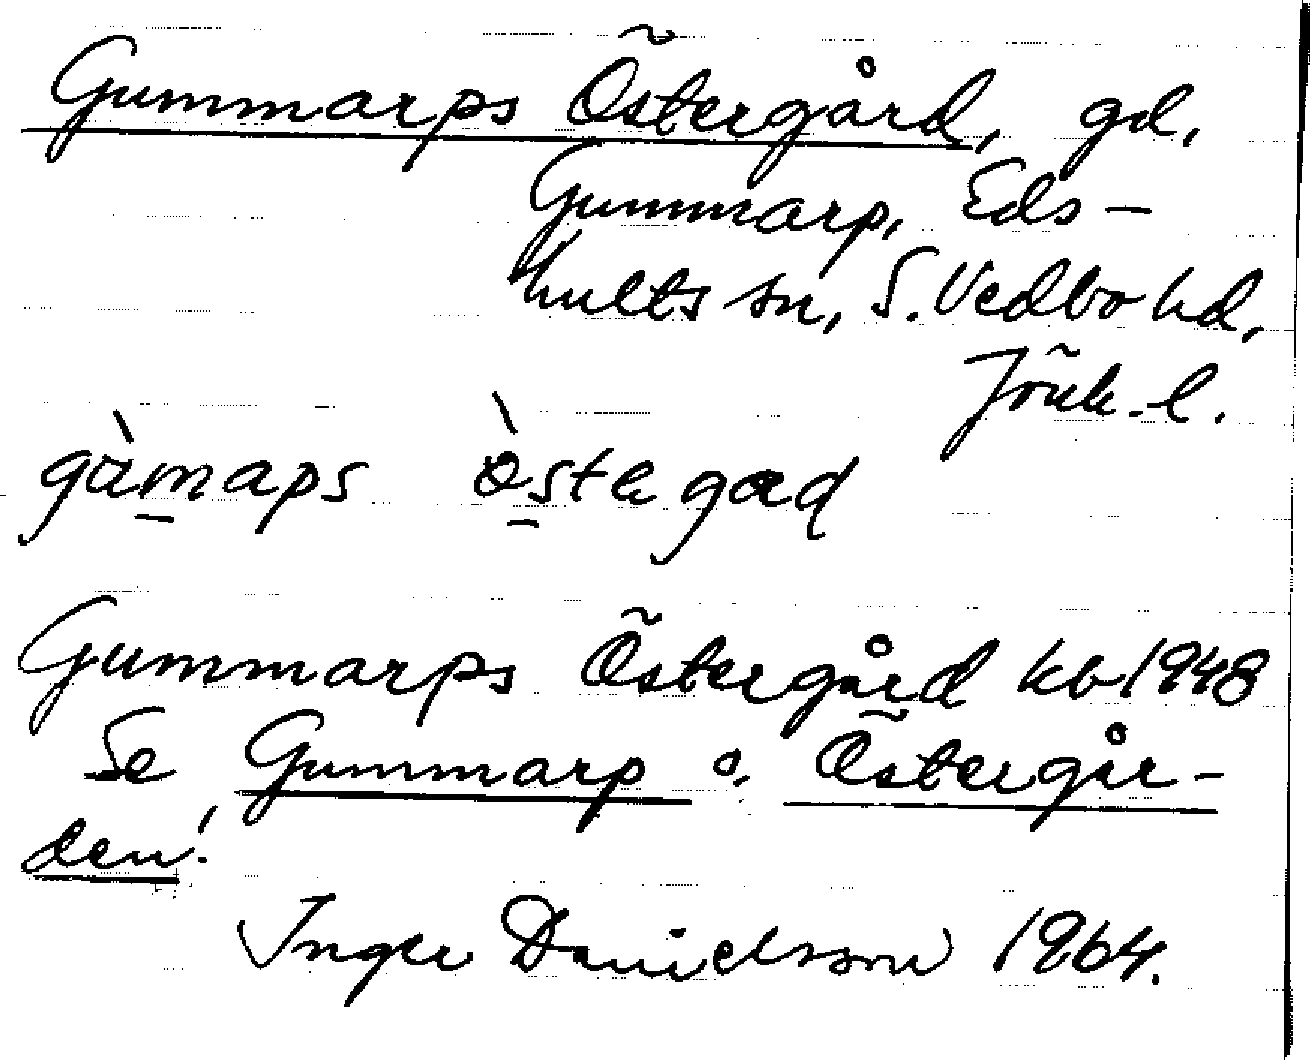 Gummarps Östergård, gd,
Gummarp, Eds-
hults sn, S. Vedbo hd,
Jönk. l.
gùmaps òstegad
Gummarps Östergård kb 1948
Se Gummarp o. Östergår-
den!
Inger Danielsson 1964.